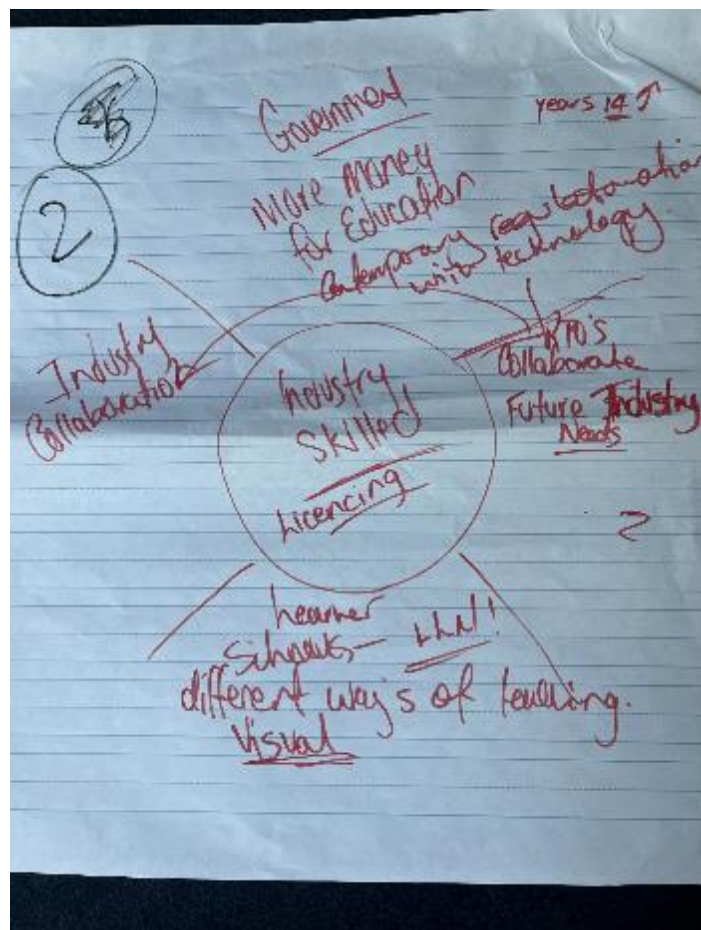 Government
years 14
More Money
for Education
Contemporary
with technology
2
Industry
Collaboration
RTO's
Collaborate
Future Industry
Needs
Industry
Skilled
Licencing
Learner
LLN!
different way's of teaching.
Visual